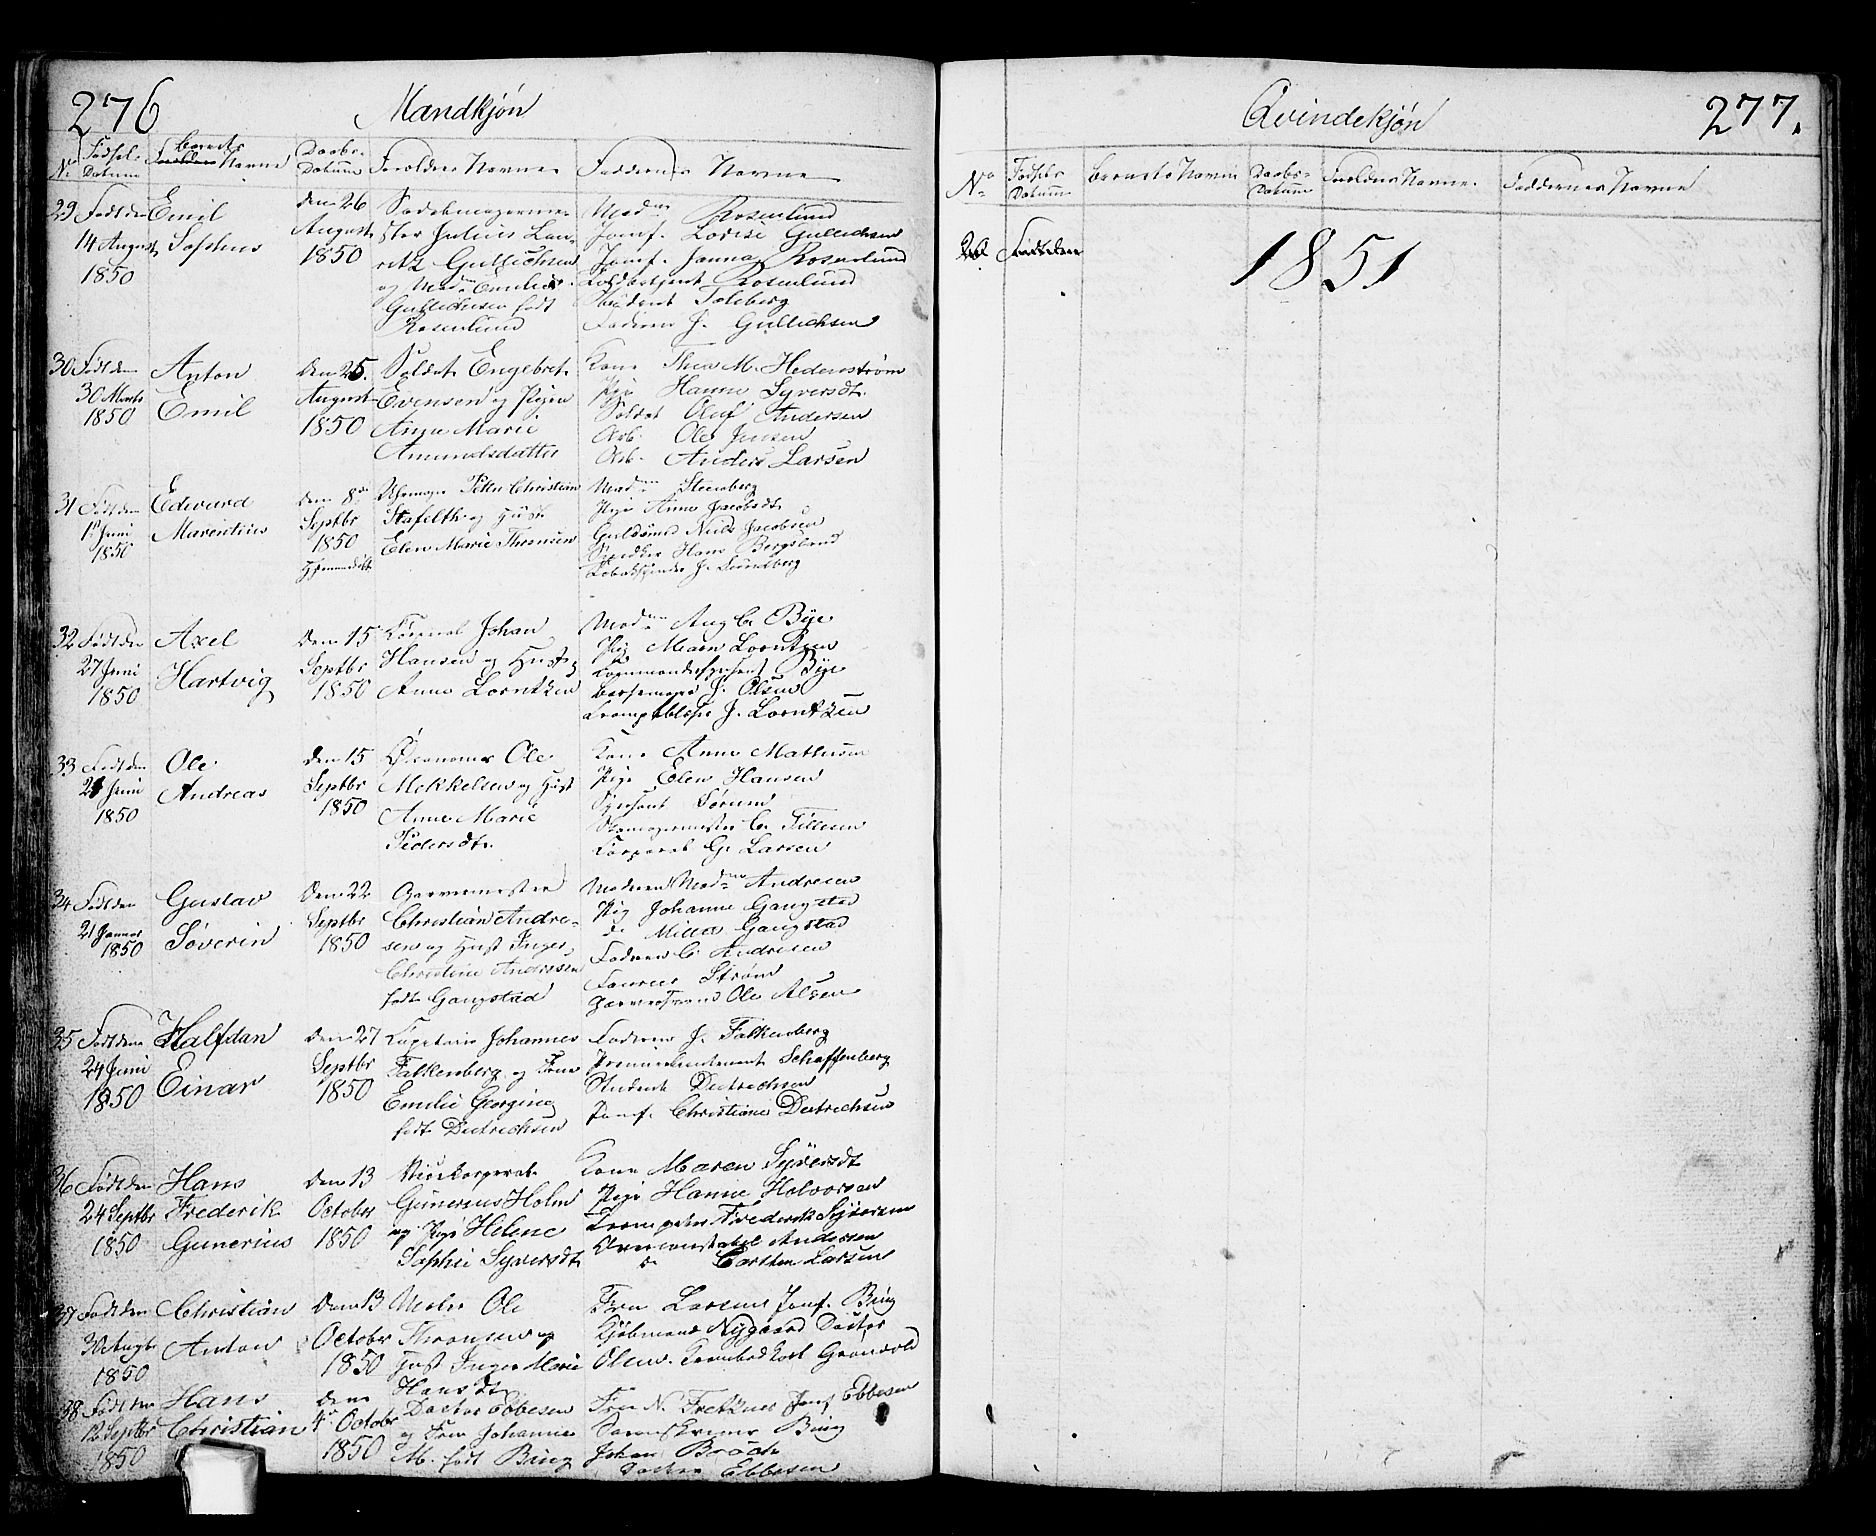 276
Mandkjön
No Fødsels Datum
Barnets Navne
Daabs-Datum
Forældres Navne
Faddernes Navne
29 Født den
14 August
1850
Emil
Sophus
den 26
August
1850
Sadelmagerme-
ster Julius Lau-
ritz Gullichsen
og Mad. Emilie
Gullichsen født
Rosenlund
Madm Rosenlund
Jomf. Lovise Gullichsen
Jomf. Janna Rosenlund
Toldbetjent Rosenlund
Student
Faderen J. Gullichsen
30 Født den
30 Marts
1850
Anton
Emil
Den 25.
August
1850
Soldat Engebret
Evensen og Pigen
Anne Marie
Amundsdatter
Kone Thea M. Hedenstrøm
Pige Hanne Syversdt.
Soldat Oluf Andersen
Arb. Ole Jensen
Arb. Anders Larsen
31 Født den
1 Juni
1850
Edvard
Marentius
den 8de
Septbr
1850
Hjemmedøbt
Peter Christian
og Hust
Elen Marie Thronsen
Madm Steenberg
Pige Anne Jacobsdt
Guldsmed Niels Jacobsen
Snedker Hans
J. Svendberg
32 Født den
27 Juni
1850
Axel
Hartvig
Den 15
Septbr
1850
Corporal Johan
Hansen og Hust
Anne Lorntzen
Madm Ang C. Bye
Pige Maren Lorntzen
Commandersergeant Bye
Bøssemager J. Olsen
J. Lorntzen
33 Født den
21 Juni
1850
Ole
Andreas
den 15
Septbr
1850
Ole
Mekkelsen og Hust
Anne Marie
Pedersdt.
Kone Anne Mathisen
Pige Elen Hansen
Sersant Sørum
Skomagermester C. Tillesen
Corporal G. Larsen
34 Født den
21 Januar
1850
Gustav
Søverin
Den 22
Septbr
1850
Garvermester
Christian Andre-
sen og Hust Inger
Christine Andresen
født Gangstad
Moderen Madm Andresen
Pige Johanne Gangstad
do Milla Gangstad
Faderen C. Andresen
Strøm
Garversvend Ole Olsen
35 Født den
24 Juni
1850
Halfdan
Einar
Den 27
Septbr
1850
Capitain Johannes
Falkenberg og Frue
Emilie Georgine
født Dietrichsen
Faderen J. Falkenberg
Premierlieutenant Schaffenberg
Student Dietrichsen
Jomf. Christiane Dietrichsen
36 Født den
24 Septbr
1850
Hans
Frederik
Gunerius
den 13
October
1850
Vicekorporal
Gunerius Holm
og Pige Helene
Sophie Syversdt.
Kone Maren Syversdt
Pige Hanne Holvorsen
Trompeter Frederik Syversen
Overconstabel Andersen
do Carsten Larsen
37 Født den
30 Augst
1850
Christian
Anton
Den 13
October
1850
Maler Ole
Thronsen og
Hust Inger Marie
Hansdt.
Fru Larsen Jomf. Bing
Kjøbmand Nygaard Doctor
Olsen. Grønvold
38 Født den
12 Septbr
1850
Hans
Christian
den
4de Octobr
1850
Doctor Ebbesen
og Frue Johanne
M. født Bing
Frue N. Jomf Ebbesen
Bing
Johan Broch
Doctor Ebbesen
Qvindekjön
277.
No
Fødsels Datum
Barnets Navn
Daabs-Datum
Forældres Navne.
Faddernes Navne
20 Født den
1851